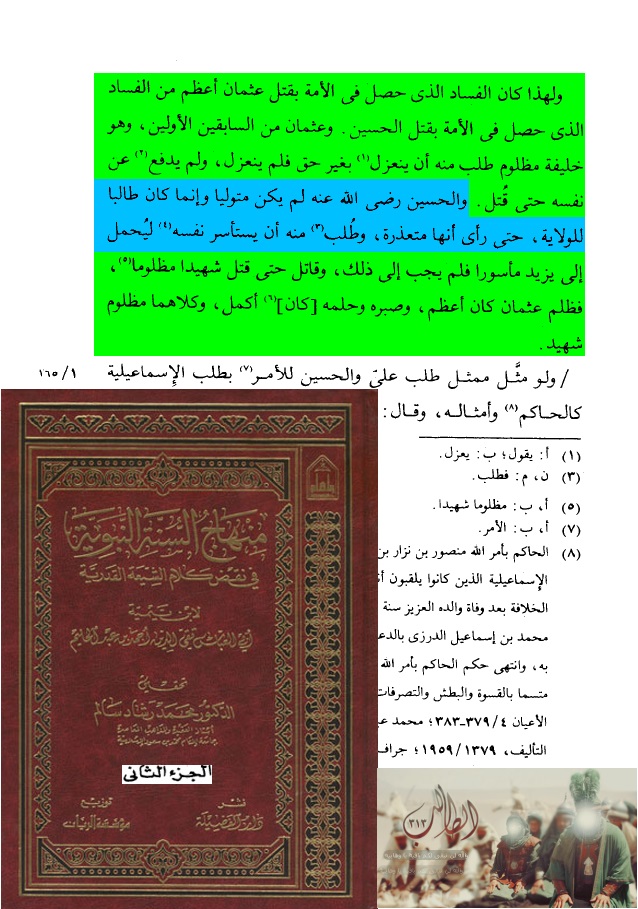 ولهذا كان الفساد الذى حصل فى الأمة بقتل عثمان أعظم من الفساد
الذى حصل فى الأمة بقتل الحسين. وعثمان من السابقين الأولين، وهو
خليفة مظلوم طلب منه أن ينعزل(١) بغير حق فلم ينعزل، ولم يدفع(٢) عن
نفسه حتى قُتل. والحسين رضى الله عنه لم يكن متوليا وإنما كان طالبا
للولاية، حتى رأى أنها متعذرة، وطُلب(٣) منه أن يستأسر نفسه(٤) ليُحمل
إلى يزيد مأسورا فلم يجب إلى ذلك، وقاتل حتى قتل شهيدا مظلوما(٥)،
فظلم عثمان كان أعظم، وصبره وحلمه [كان](٦) أكمل، وكلاهما مظلوم
شهيد.
/ ولو مثَّل ممثل طلب علىّ والحسين للأمر(٧) بطلب الإسماعيلية ١٦٥/١
كالحاكم(٨) وأمثاله، وقال:
(١) أ: يقول؛ ب: يعزل.
(٣) ن، م: فطلب.
(٥) أ، ب: مظلوما شهيدا.
(٧) أ، ب: الأمر.
(٨) الحاكم بأمر الله منصور بن نزار بن
الإسماعيلية الذين كانوا يلقبون
الخلافة بعد وفاة والده العزيز سنة
محمد بن إسماعيل الدرزى بالدع
به، وانتهى حكم الحاكم بأمر الله
متسما بالقسوة والبطش والتصرفات
الأعيان ٣٧٩/٤-٣٨٣؛ محمد عب
التأليف، ١٩٥٩/١٣٧٩؛ جراف
منهاج السنة النبوية
في نقض كلام الشيعة القدرية
لابن تيمية
أبي العباس تقي الدين أحمد بن عبد الحليم
تحقيق
الدكتور محمد رشاد سالم
الجزء الثانى
نشر
دار الفضيلة
توزيع
مؤسسة الريان
الطالب
٣١٣